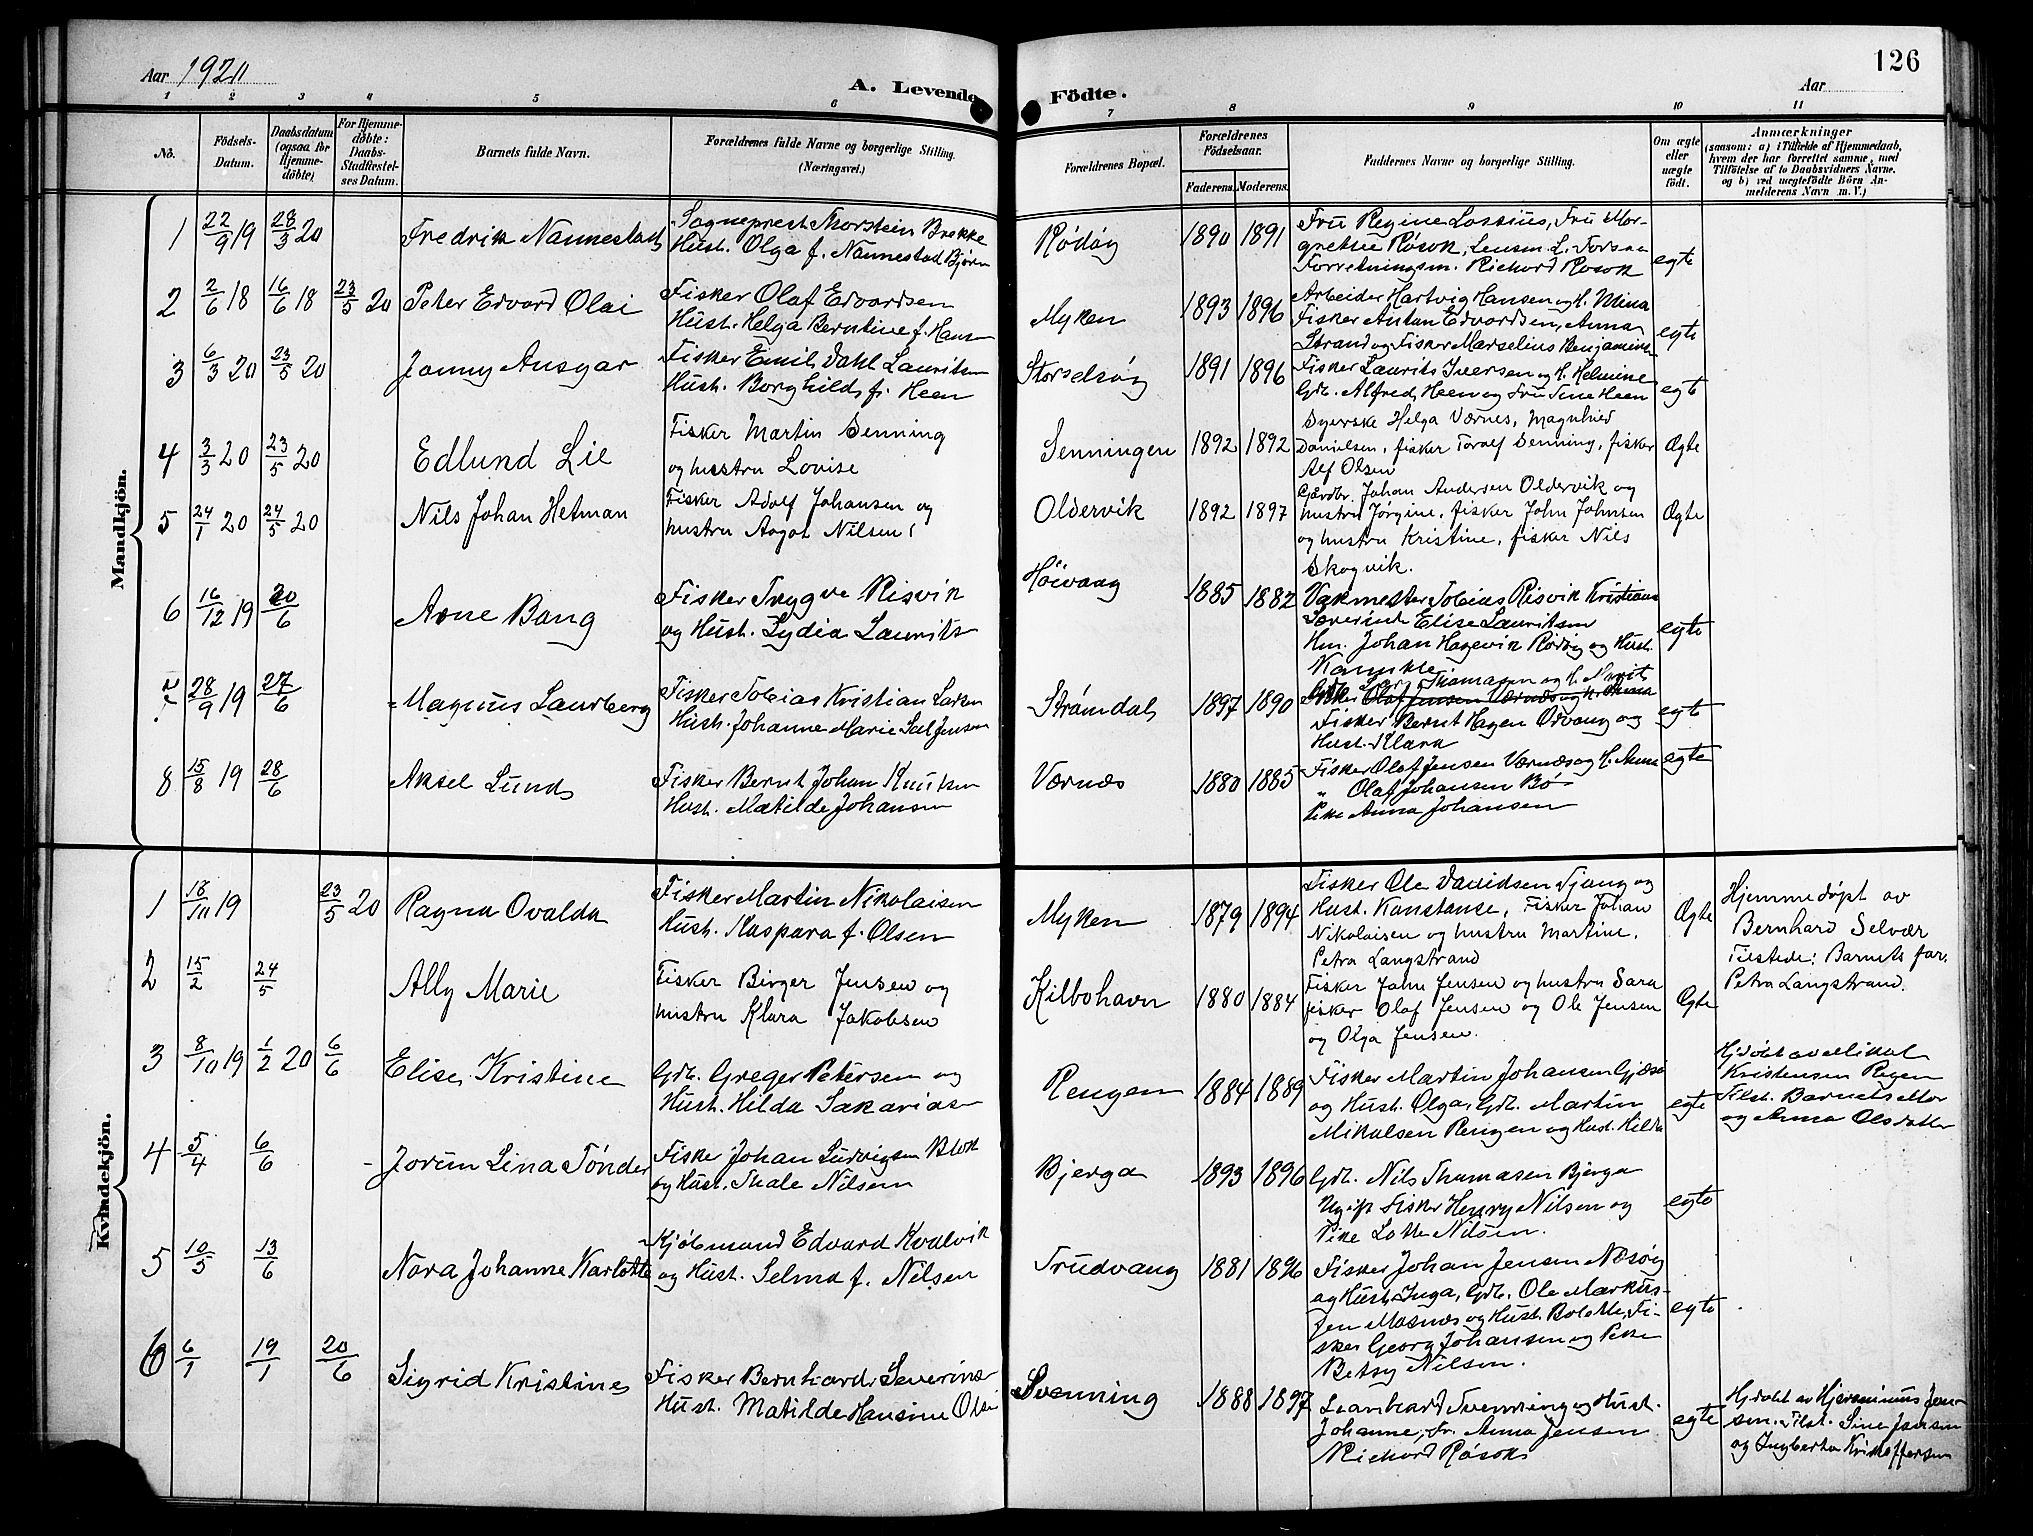 126
Aar 1920
A. Levende Födte.
Aar
1 2 3 4 5 6 7 8 9 10 11
No.
Födsels-Datum.
Daabsdatum (ogsaa for Hjemme-döbte)
For Hjemme-döbte: Daabs-Stadfæstel-ses Datum.
Barnets fulde Navn.
Forældrenes fulde Navne og borgerlige Stilling. (Næringsvei.)
Forældrenes Bopæl.
Forældrenes Födselsaar.
Faderens. Moderens.
Faddernes Navne og borgerlige Stilling.
Om ægte eller uægte födt.
Anmærkninger
(saasom: a) i Tilfælde af Hjemmedaab,
hvem der har forrettet samme, med
Tilföielse af to Daabsvidners Navne.
og b) ved uægtefödte Börn An-
melderens Navn m. V.)
Mandkjön.
1 22/9 19 28/3 20 Fredrik Nannestad Sogneprest Thorstein Brekke Rödöy 1890 1891 Fru Regine Lossius, Fru Mar-
Hust. Olga f. Nannestad Bjørn grethe Røsok, Lensm. L. Forsaa egte
Forretningsm. Richard Rosok
2 2/6 18 16/6 18 23/5 20 Peter Edvard Olai Fisker Olaf Edvardsen Myken 1893 1896 Arbeider Hartvig Hansen og H. Mina
Hust. Helga Berntine f. Hans Fisker Anton Edvardsen, Anna egte
Strand og Fisker Marselius Benjamins
3 6/3 20 23/5 20 Jonny Ansgar Fisker Emil Dahl Lauritsen Storselsøy 1891 1896 Fisker Laurits Iversen og H. Helmine
Hust. Borghild f. Heen Gdb. Alfred Heen og Fru Tine Heen egte
4 3/3 20 23/5 20 Edlund Lie Fisker Martin Senning Senningen 1892 1892 Syerske Helga Værnes, Magnhild
og hustru Lovise Danielsen, fisker Toralf Senning, fisker Ægte
Alf Olsen
5 24/1 20 24/5 20 Nils Johan Hetman Fisker Adolf Johansen og Oldervik 1892 1897 Gårdbr. Johan Andersen Oldervik og
hustru Aagot Nilsen hustru Jørgine, fisker John Johnsen Ægte
og hustru Kristine, fisker Nils
Skogvik.
6 16/12 19 20/6 Arne Bang Fisker Trygve Risvik Høivaag 1885 1882 Vakmester Tobias Risvik Kristians
og Hust. Lydia Laurits Severine Elise Lauritsen egte
Hm. Johan Hagevik Rødøy og Hust.
7 28/9 19 27/6 Magnus Laurberg Fisker Tobias Kristian Larsen Strømdal 1897 1890 Thomasen og H. Marit
Hust. Johanne Marie Sel Jensen Fisker Olaf Jensen Værnes og H. Anna egte
Fisker Bernt Hagen Odvang og
Hust. Klara
8 15/8 19 28/6 Aksel Lund Fisker Bernt Johan Knutsen Værnæs 1880 1885 Fisker Olaf Jensen Værnæs og H. Anna egte
Hust. Matilde Johansen " Olaf Johansen Bø
Pike Anna Johansen
Kvindekjön.
1 18/10 19 23/5 20 Ragna Ovalda Fisker Martin Nikolaisen Myken 1879 1894 Fisker Ole Davidsen Tjong og Hjemmedøpt av
Hust. Kaspara f. Olsen Hust. Konstanse, Fisker Johan Ægte Bernhard Selvær
Nikolaisen og hustru Martine, Tilstede: Barnets far,
Petra Langstrand Petra Langstrand.
2 15/2 24/5 Ally Marie Fisker Birger Jensen og Kilbohavn 1880 1884 Fisker John Jensen og hustru Sara
hustru Klara Jakobsen fisker Olaf Jensen og Ole Jensen Ægte
og Olga Jensen.
3 8/10 19 1/2 20 6/6 Elise Kristine Gdb. Greger Petersen og Rengen 1884 1889 Fisker Martin Johansen Gjæsø Hjdøbt av Mikal
Hust. Hilda Sakarias og Hust. Olga, Gdb. Martin egte Kristensen Regen
Mikalsen Rengen og Hust. Hilda Tilst. Barnets Mor
og Anna Olsdatter
4 5/4 6/6 Jorun Lina Tønder Fisker Johan Ludvigsen Blok Bjerga 1893 1896 Gdb. Nils Thomasen Bjerga
og Hust. Thale Nilsen Ugift Fisker Henry Nilsen og egte
Pike Lotte Nilsen.
5 10/5 13/6 Nora Johanne Karlotte Kjøbmand Edvard Kvalvik Trudvang 1881 1896 Fisker Johan Jensen Nesøy
og Hust. Selma f. Nilsen og Hust. Inga, Gdb. Ole Markus-
sen Masnæs og Hust. Bolette, Fi- egte
sker Georg Johansen og Pike
Betsy Nilsen.
6 6/1 19/1 20/6 Sigrid Kristine Fisker Bernhard Severins Svenning 1888 1897 Leonhard Svenning og Hust. Hjdøbt av Hjeronimus Jen-
Hust. Matilde Hansine Olsen Johanne, Fr. Anna Jensen egte sen. Tilst. Sine Jensen
Richard Røsok og Ingberta Kristoffersen